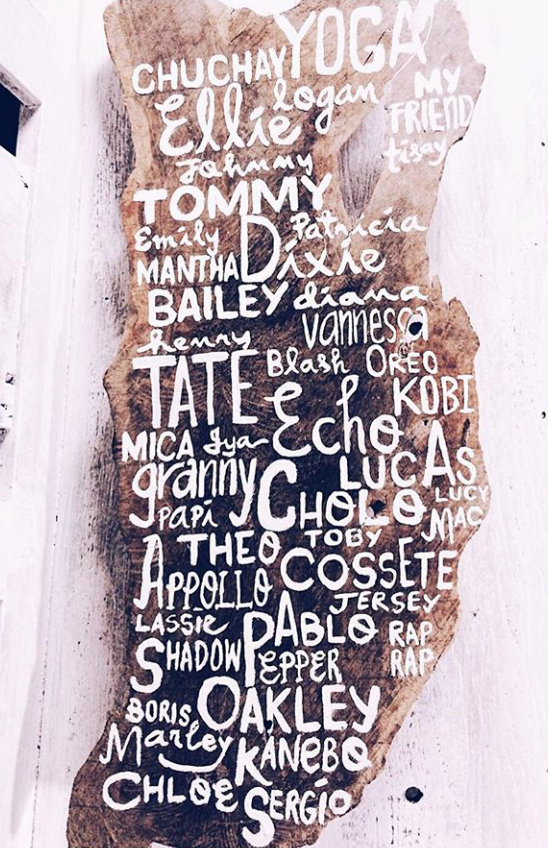 YOGA
CHUCHAY
logan
MY
FRIEND
tisay
Ellie
Johnny
TOMMY
Emily
Patricia
MANTHA
Dixie
BAILEY
diana
vannessa
henny
TATE
Blash
OREO
KOBI
Echo
MICA
Iya
LUCAS
granny
CHOLO
LUCY
papi
MAC
THEO
TOBY
APPOLLO
COSSETE
JERSEY
LASSIE
PABLO
RAP
RAP
SHADOW
PEPPER
OAKLEY
BORIS
Marley
KANEBO
CHLOE
SERGIO